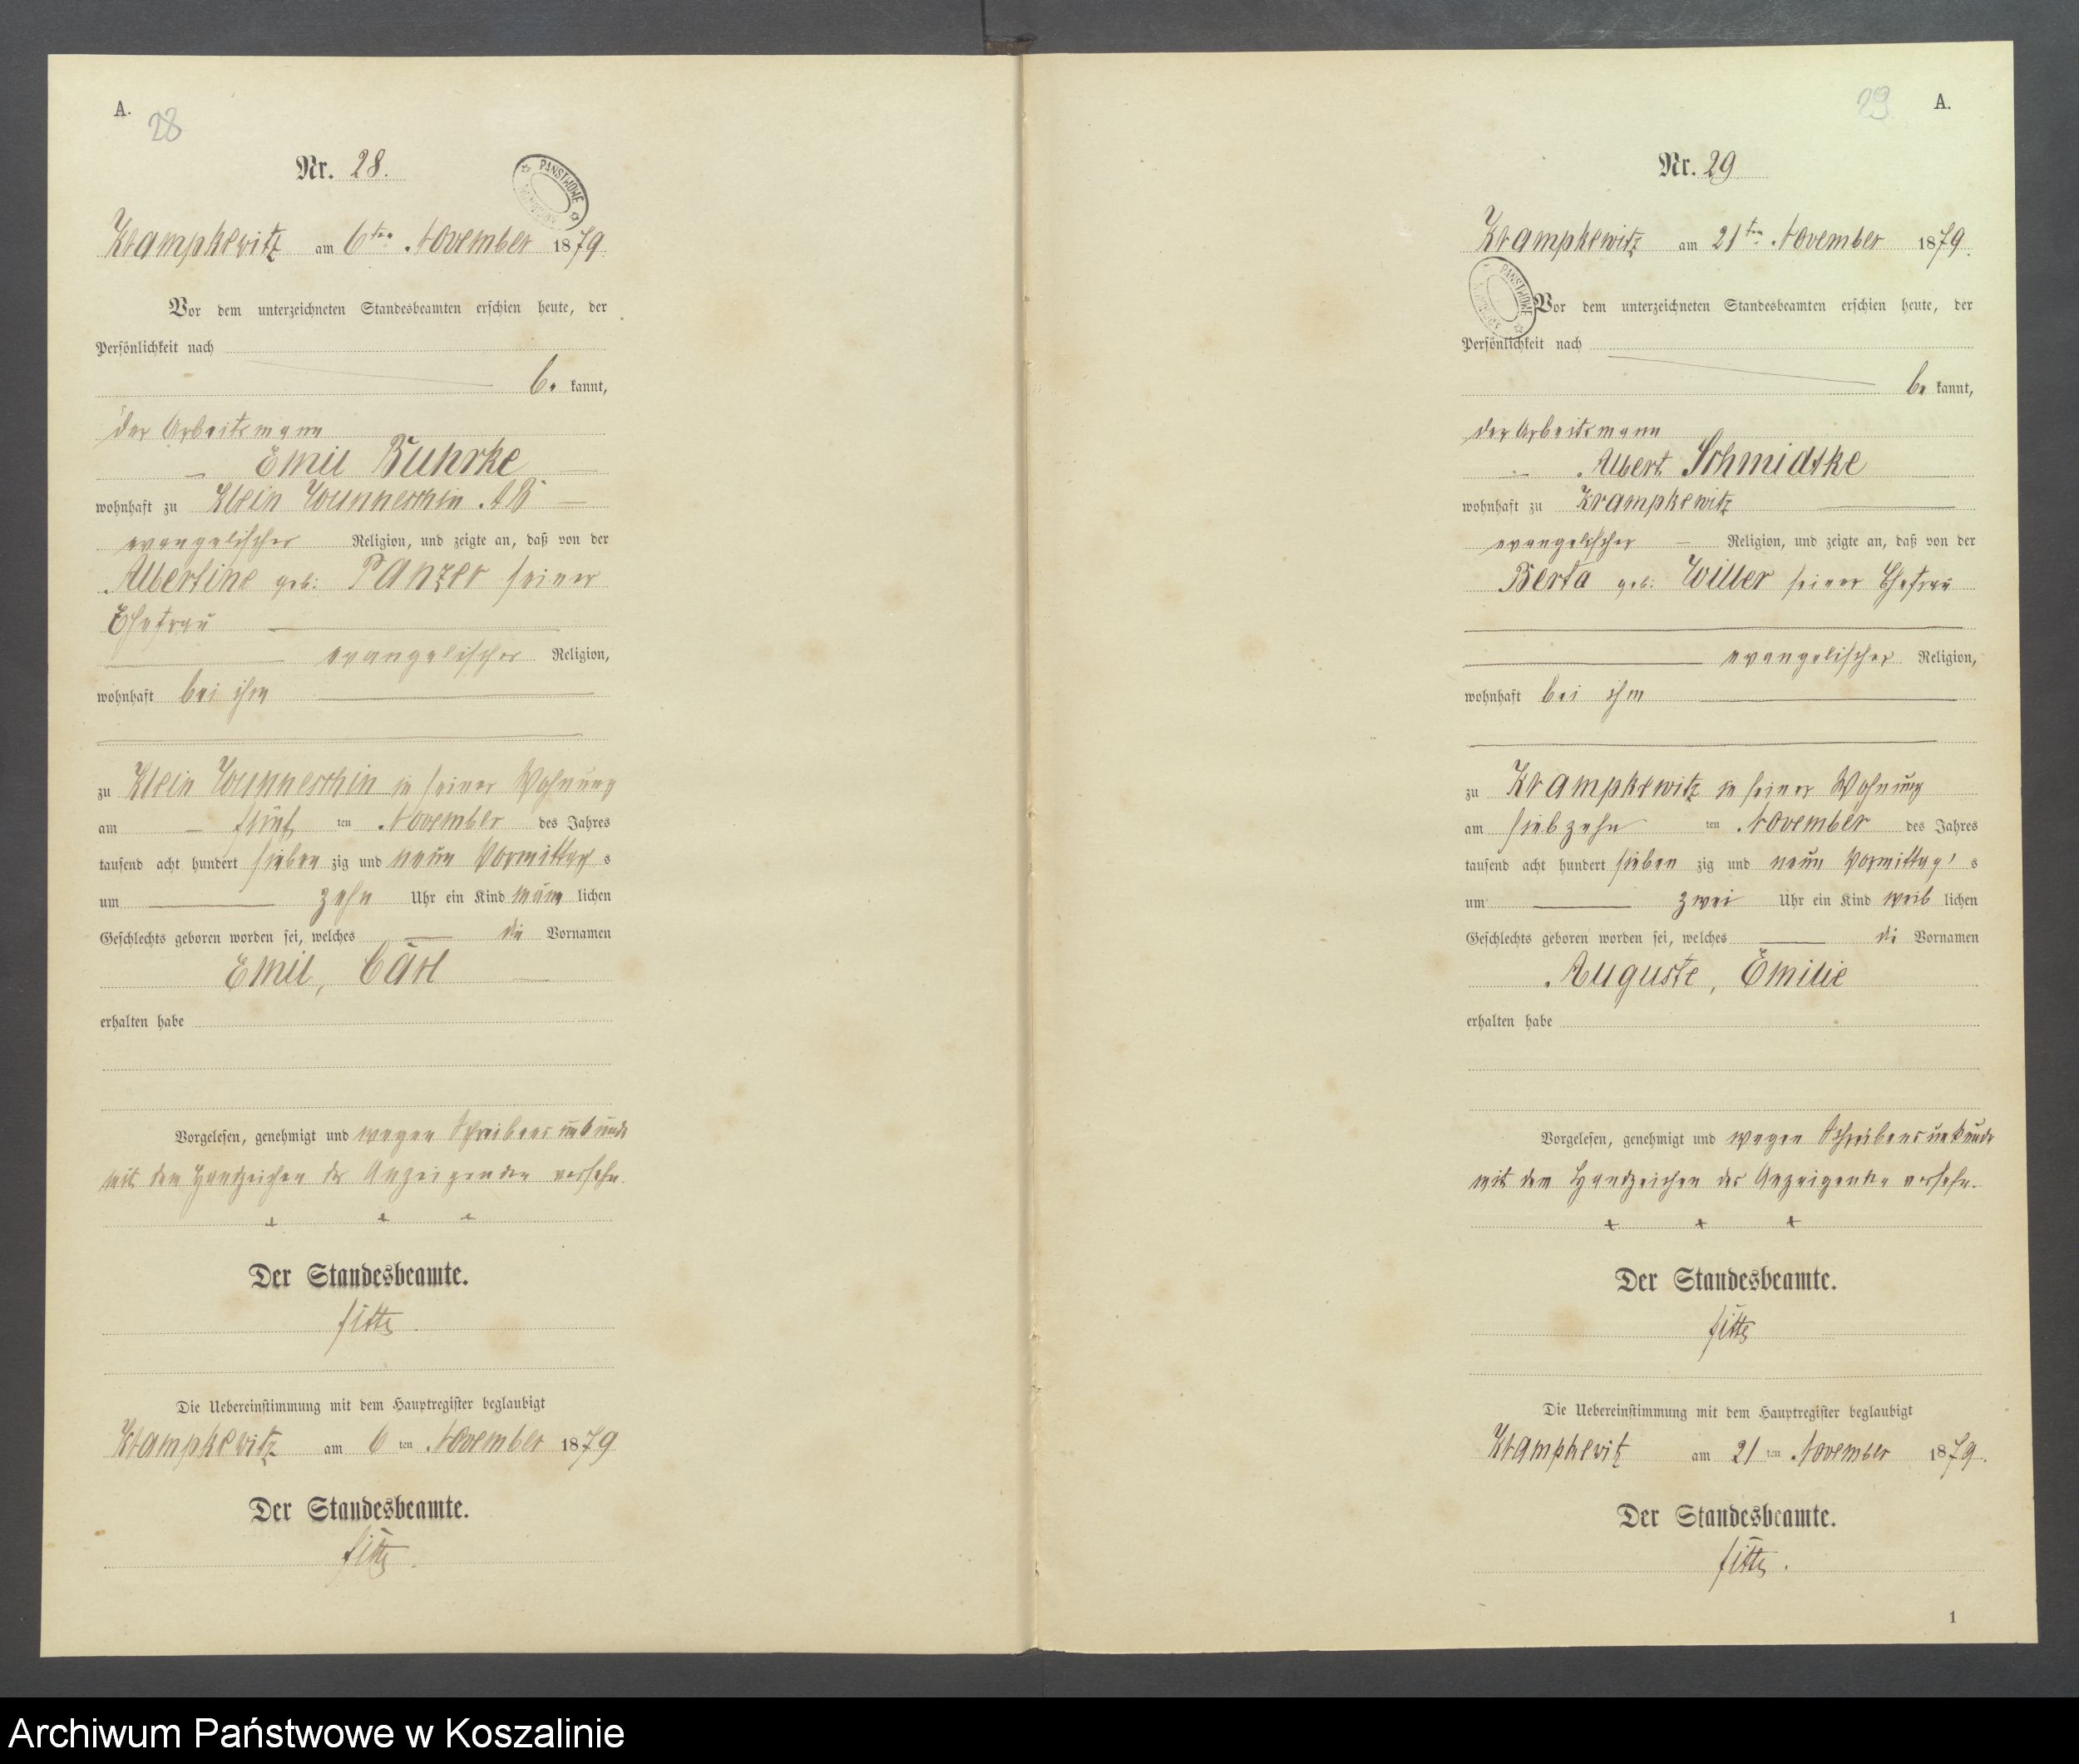 A.
28
Nr. 28.
PAŃSTWOWE
Krampkewitz am 6ten November 1879.
Vor dem unterzeichneten Standesbeamten erschien heute, der
Persönlichkeit nach
be kannt,
der Arbeitsmann
Emil Buhrke
wohnhaft zu Klein Wunneschin AB
evangelischer Religion, und zeigte an, daß von der
Albertine geb: Panzer seiner
Ehefrau
evangelischer Religion,
wohnhaft bei ihm
zu Klein Wunneschin in seiner Wohnung
am fünf ten November des Jahres
tausend acht hundert sieben zig und neun Vormittag s
um zehn Uhr ein Kind männ lichen
Geschlechts geboren worden sei, welches die Vornamen
Emil, Carl
erhalten habe
Vorgelesen, genehmigt und wegen Schreibensunkunde
mit dem Handzeichen des Anzeigenden versehn.
+ + +
Der Standesbeamte.
Die Uebereinstimmung mit dem Hauptregister beglaubigt
Krampkewitz am 6 ten November 1879
Der Standesbeamte.
29
A.
Nr. 29
Krampkewitz am 21ten November 1879.
PAŃSTWOWE
Vor dem unterzeichneten Standesbeamten erschien heute, der
Persönlichkeit nach
be kannt,
der Arbeitsmann
Albert Schmidtke
wohnhaft zu Krampkewitz
evangelischer Religion, und zeigte an, daß von der
Berta geb: Willer seiner Ehefrau
evangelischer Religion,
wohnhaft bei ihm
zu Krampkewitz in seiner Wohnung
am siebzehn ten November des Jahres
tausend acht hundert sieben zig und neun Vormittag s
um zwei Uhr ein Kind weib lichen
Geschlechts geboren worden sei, welches die Vornamen
Auguste, Emilie
erhalten habe
Vorgelesen, genehmigt und wegen Schreibensunkunde
mit dem Handzeichen des Anzeigenden versehn.
+ + +
Der Standesbeamte.
Die Uebereinstimmung mit dem Hauptregister beglaubigt
Krampkewitz am 21 ten November 1879.
Der Standesbeamte.
1
Archiwum Państwowe w Koszalinie